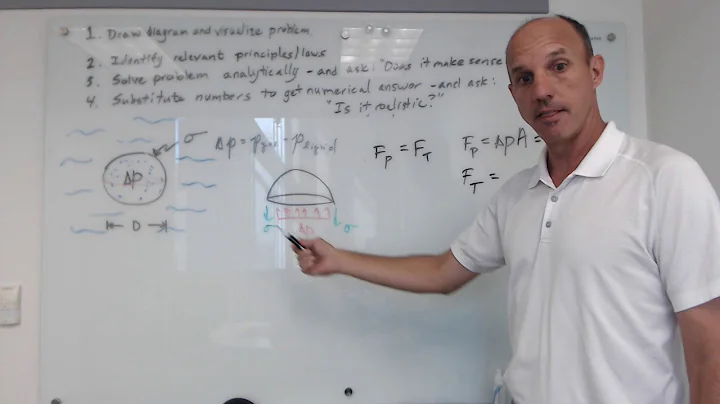 1. Draw diagram and visualize problem
2. Identify relevant principles/laws
3. Solve problem analytically - and ask: "Does it make sense
4. Substitute numbers to get numerical answer - and ask:
"Is it realistic?"
σ
Δp = pgas - pliquid
Δp
D
σ
Δp
σ
Fp = FT
Fp = ΔpA =
FT =